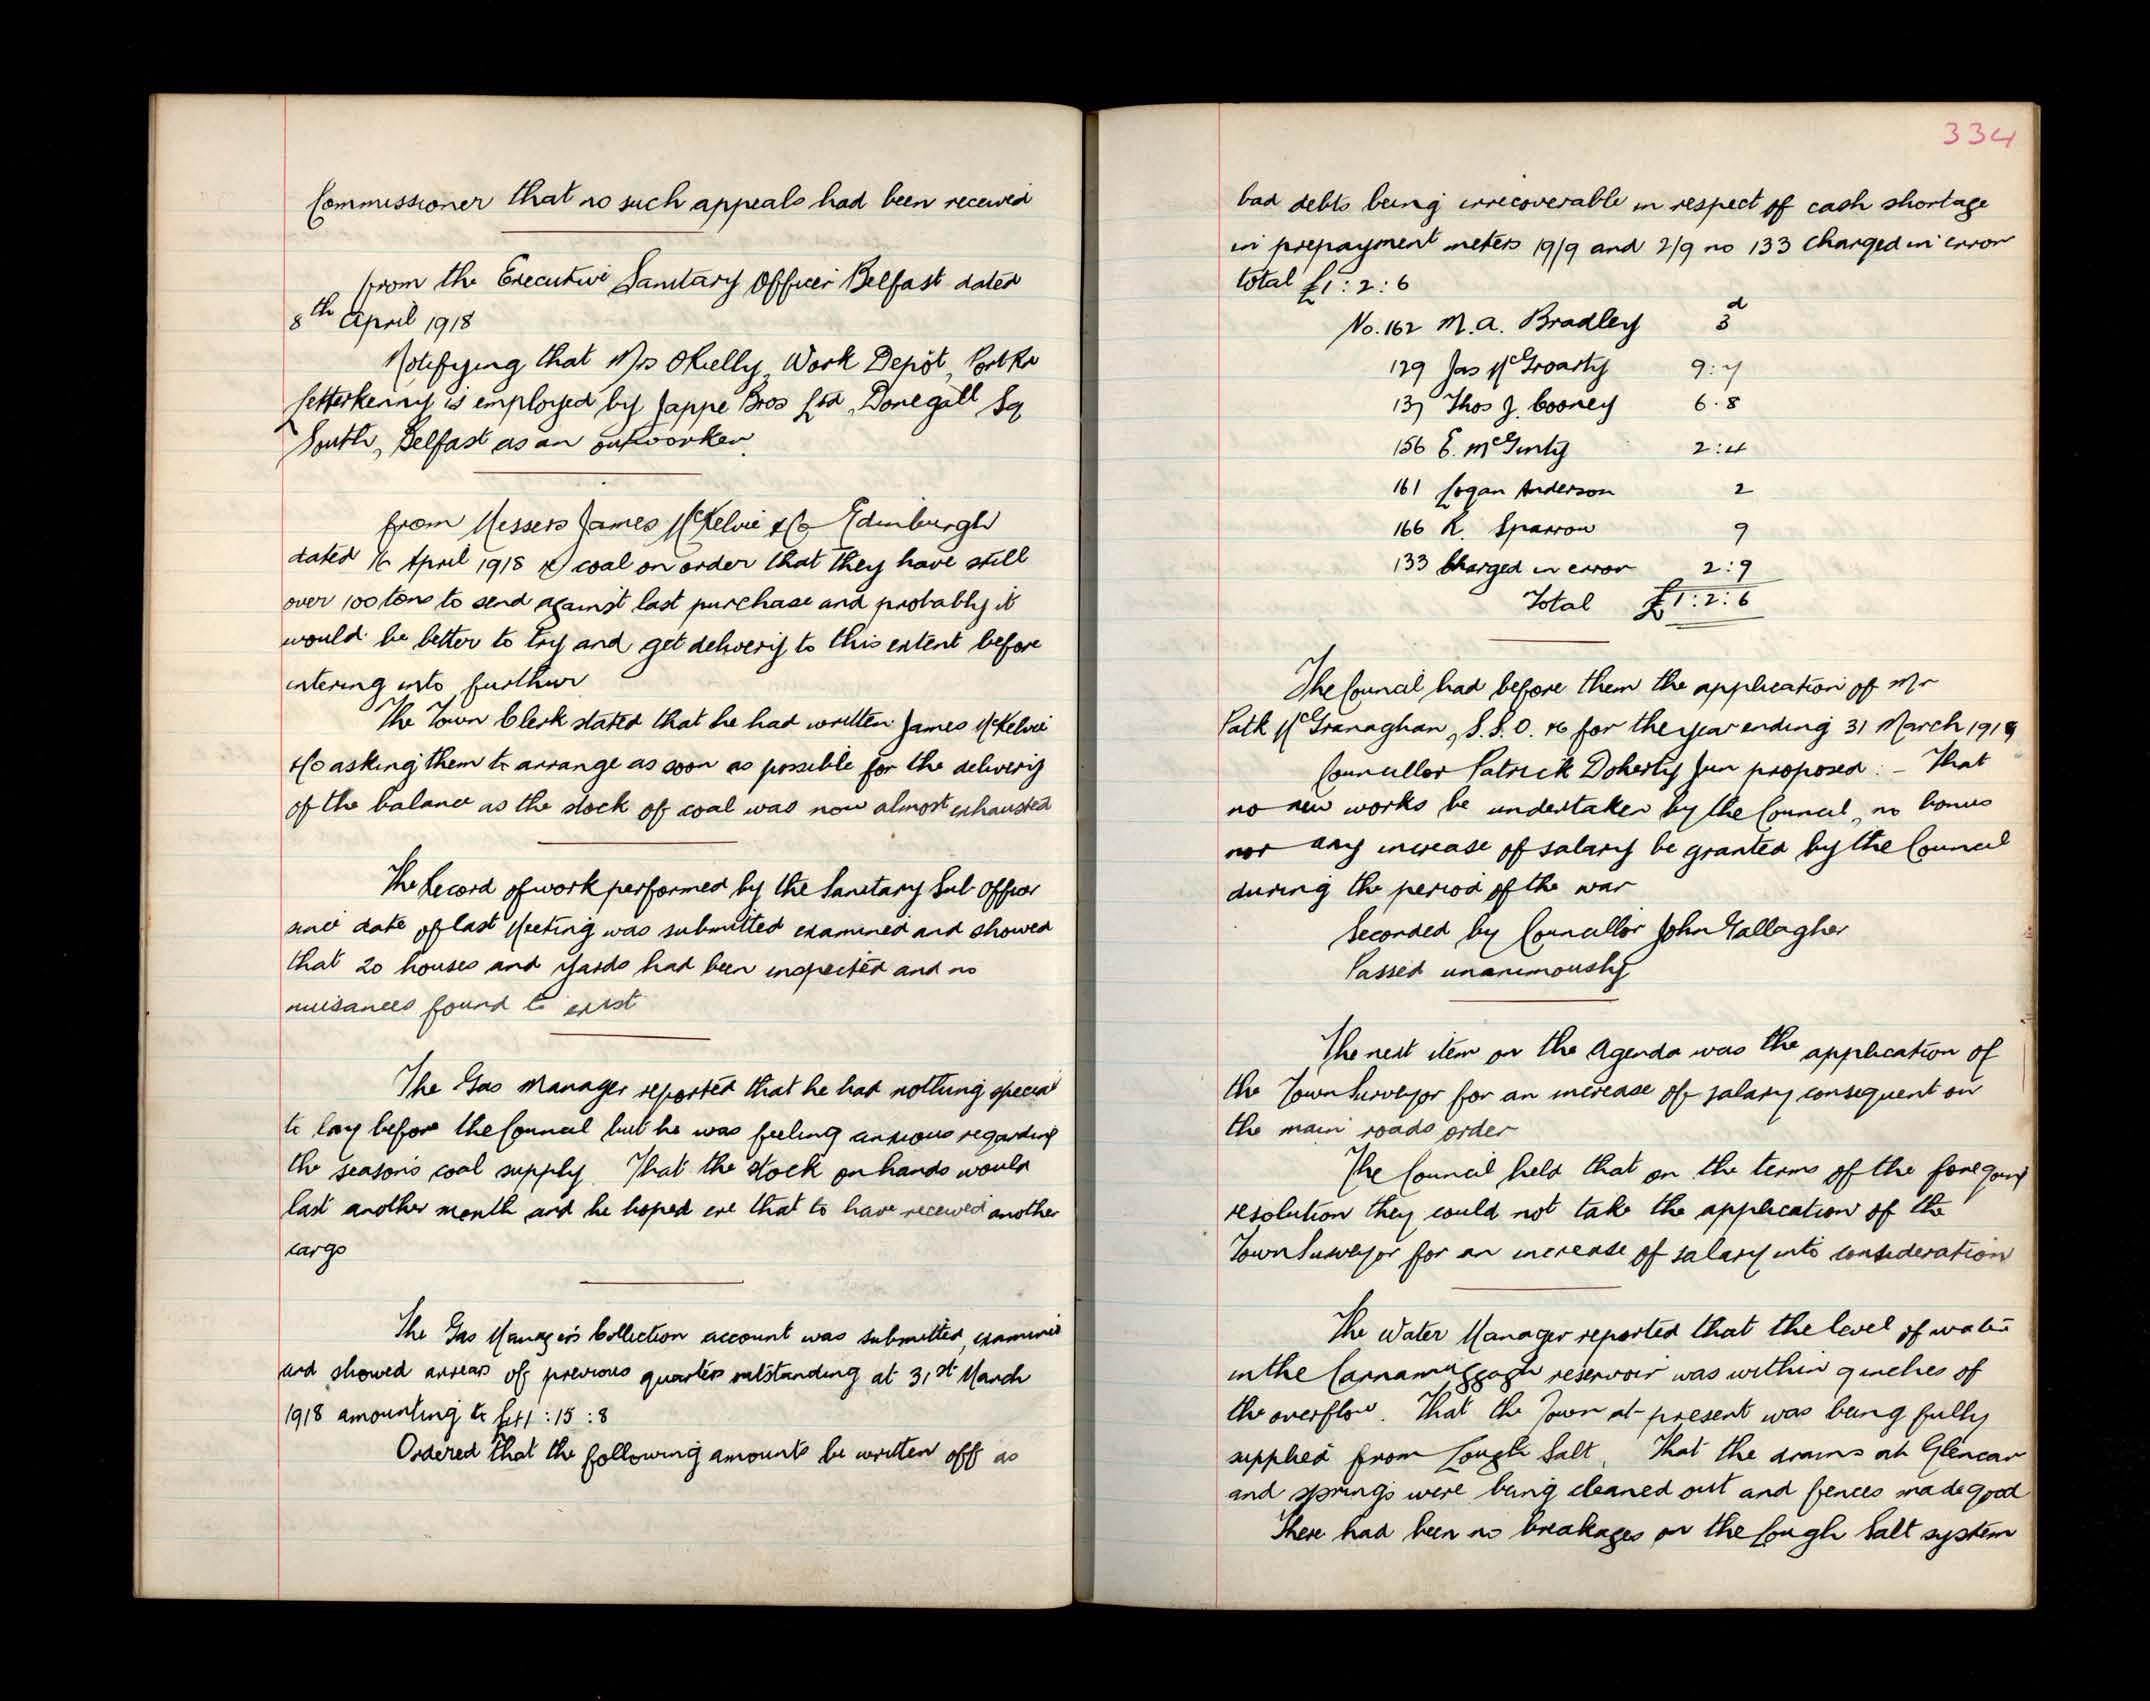 Commissioner that no such appeals had been received
from the Executive Sanitary Officer Belfast dated
8th April 1918
Notifying that Mrs OKielly, Work Depôt, Port Rd
Letterkenny is employed by Jappe Bros Ltd, Donegall Sq
South, Belfast as an outworker.
from Messers James McKelvie & Co Edinburgh
dated 16 April 1918 re coal on order that they have still
over 100 tons to send against last purchase and probably it
would be better to try and get delivery to this extent before
intering into further
The Town Clerk stated that he had written James McKelvie
& Co asking them to arrange as soon as possible for the delivery
of the balance as the stock of coal was now almost exhausted
The Record of work performed by the Sanitary Sub Officer
since date of last Meeting was submitted examined and showed
that 20 houses and yards had been inspected and no
nuisances found to exist
The Gas Manager reported that he had nothing special
to lay before the Council but he was feeling anxious regarding
the seasons coal supply. That the stock on hands would
last another month and he hoped ere that to have received another
cargo
The Gas Manager's Collection account was submitted, examined
and showed arrears of previous quarters outstanding at 31st March
1918 amounting to £41 : 15 : 8
Ordered that the following amounts be written off as
334
bad debts being irrecoverable in respect of cash shortage
in prepayment meters 19/9 and 2/9 no 133 Charged in error
total £1 : 2 : 6
No. 162 M. A. Bradley 3d
129 Jas McGroarty 9 : 7
137 Thos J. Cooney 6 . 8
156 E. McGinty 2 : 4
161 Logan Anderson 2
166 R. Sparrow 9
133 Charged in error 2 : 9
Total £1 : 2 : 6
The Council had before them the application of Mr
Patk McGranaghan, S.S.O. &c for the year ending 31 March 1919
Councillor Patrick Doherty Jun proposed : - That
no new works be undertaken by the Council, no bonus
nor any increase of salary be granted by the Council
during the period of the war
Seconded by Councillor John Gallagher
Passed unanimously
The next item on the Agenda was the application of
the Town Surveyor for an increase of salary consequent on
the main roads order
The Council held that on the terms of the foregoing
resolution they could not take the application of the
Town Surveyor for an increase of salary into consideration
The Water Manager reported that the level of water
in the Carnamuggagh reservoir was within 9 inches of
the overflow. That the Town at present was being fully
supplied from Lough Salt. That the drains at Glencar
and springs were being cleaned out and fences made good
There had been no breakages on the Lough Salt system